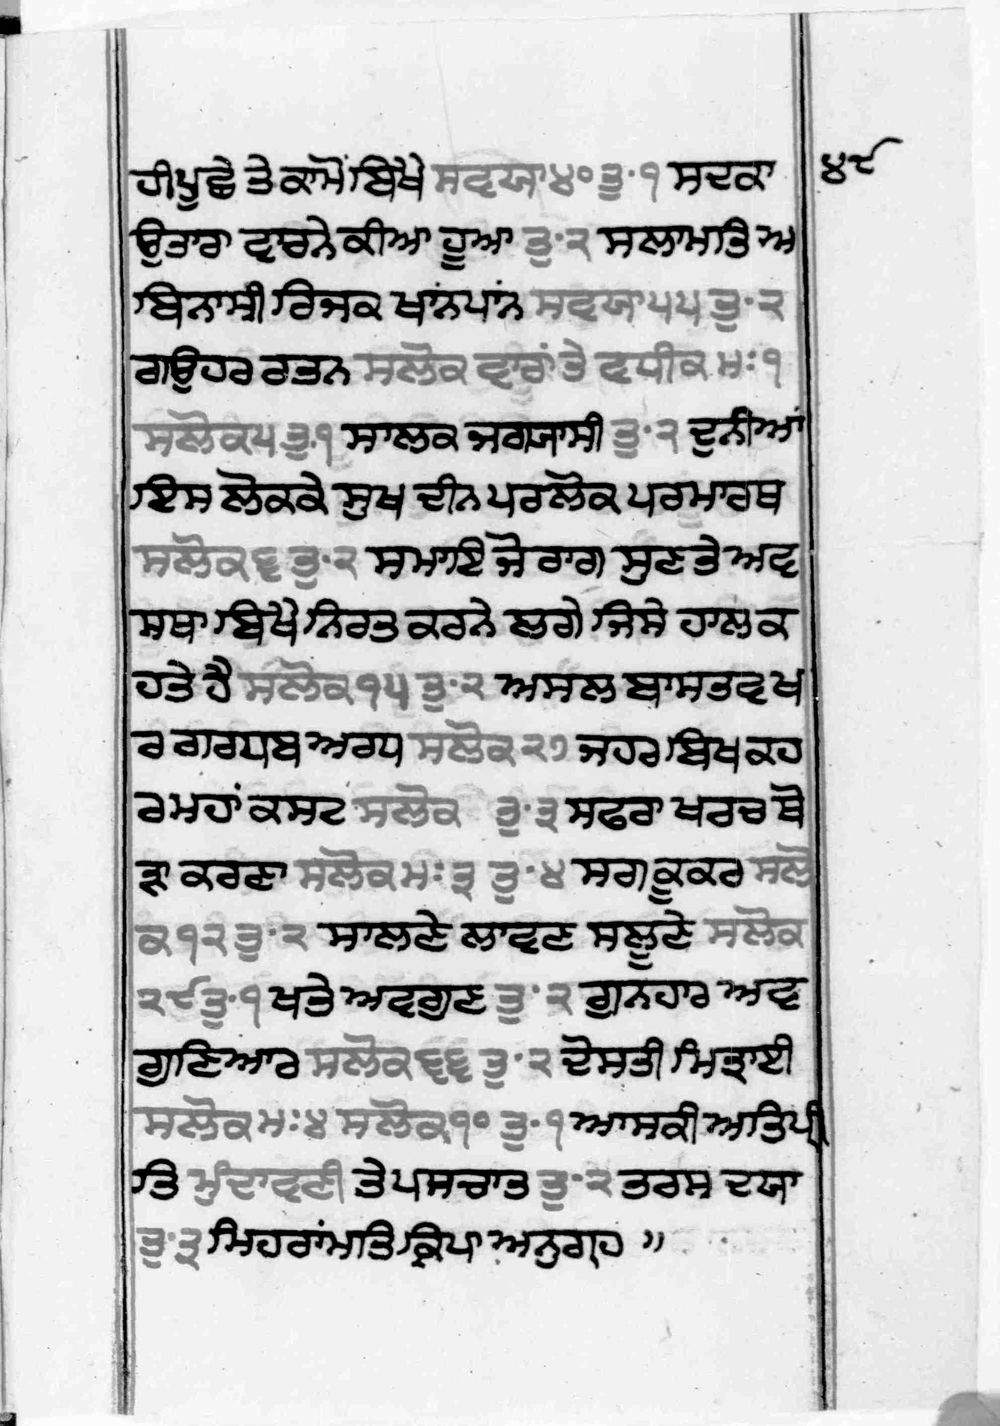 ਹੀਪੂਛੇ ਤੇ ਕਾਮੋਂ ਬਿਖੇ ਸਵਯਾ ੪੦ ਤੁ·੧ ਸਦਕਾ ੪੯
ਉਤਾਰਾ ਵਾਰਨੇ ਕੀਆ ਹੂਆ ਤੁ·੨ ਸਲਾਮਤਿ ਅ
ਬਿਨਾਸੀ ਰਿਜਕ ਖਾਂਨਪਾਂਨ ਸਵਯਾ ੫੫ ਤੁ·੨
ਗਉਹਰ ਰਤਨ ਸਲੋਕ ਵਾਰਾਂ ਤੇ ਵਧੀਕ ਮਃ ੧
ਸਲੋਕ ੫ ਤੁ·੧ ਸਾਲਕ ਜਗਯਾਸੀ ਤੁ·੨ ਦੁਨੀਆਂ
ਇਸ ਲੋਕਕੇ ਸੁਖ ਦੀਨ ਪਰਲੋਕ ਪਰਮਾਰਥ
ਸਲੋਕ ੬ ਤੁ·੨ ਸਮਾਇ ਜੋ ਰਾਗ ਸੁਣਤੇ ਅਵ
ਸਥਾ ਬਿਖੈ ਨਿਰਤ ਕਰਨੇ ਲਗੇ ਜਿਸੇ ਹਾਲ ਕ
ਹਤੇ ਹੈ ਸਲੋਕ ੧੫ ਤੁ·੨ ਅਸਲ ਬਾਸਤਵ ਖ
ਰ ਗਰਧਬ ਅਰਧ ਸਲੋਕ ੨੭ ਜਹਰ ਬਿਖ ਕਹ
ਰ ਮਹਾਂ ਕਸਟ ਸਲੋਕ ਤੁ·੩ ਸਫਰਾ ਖਰਚ ਥੋ
ੜਾ ਕਰਣਾ ਸਲੋਕ ਮਃ ੩ ਤੁ·੪ ਸਗ ਕੂਕਰ ਸਲੋ
ਕ ੧੨ ਤੁ·੨ ਸਾਲਣੇ ਲਾਵਣ ਸਲੂਣੇ ਸਲੋਕ
੨੯ ਤੁ·੧ ਖਤੇ ਅਵਗੁਣ ਤੁ·੨ ਗੁਨਹਾਰ ਅਵ
ਗੁਣਿਆਰ ਸਲੋਕ ੬੬ ਤੁ·੨ ਦੋਸਤੀ ਮਿਤ੍ਰਾਈ
ਸਲੋਕ ਮਃ ੪ ਸਲੋਕ ੧੦ ਤੁ·੧ ਆਸਕੀ ਅਤਿਪ੍ਰੀ
ਤਿ ਮੁੰਦਾਵਣੀ ਤੇ ਪਸਚਾਤ ਤੁ·੨ ਤਰਸ ਦਯਾ
ਤੁ·੩ ਮਿਹਰਾਂਮਤਿ ਕ੍ਰਿਪਾ ਅਨੁਗ੍ਰਹ ॥